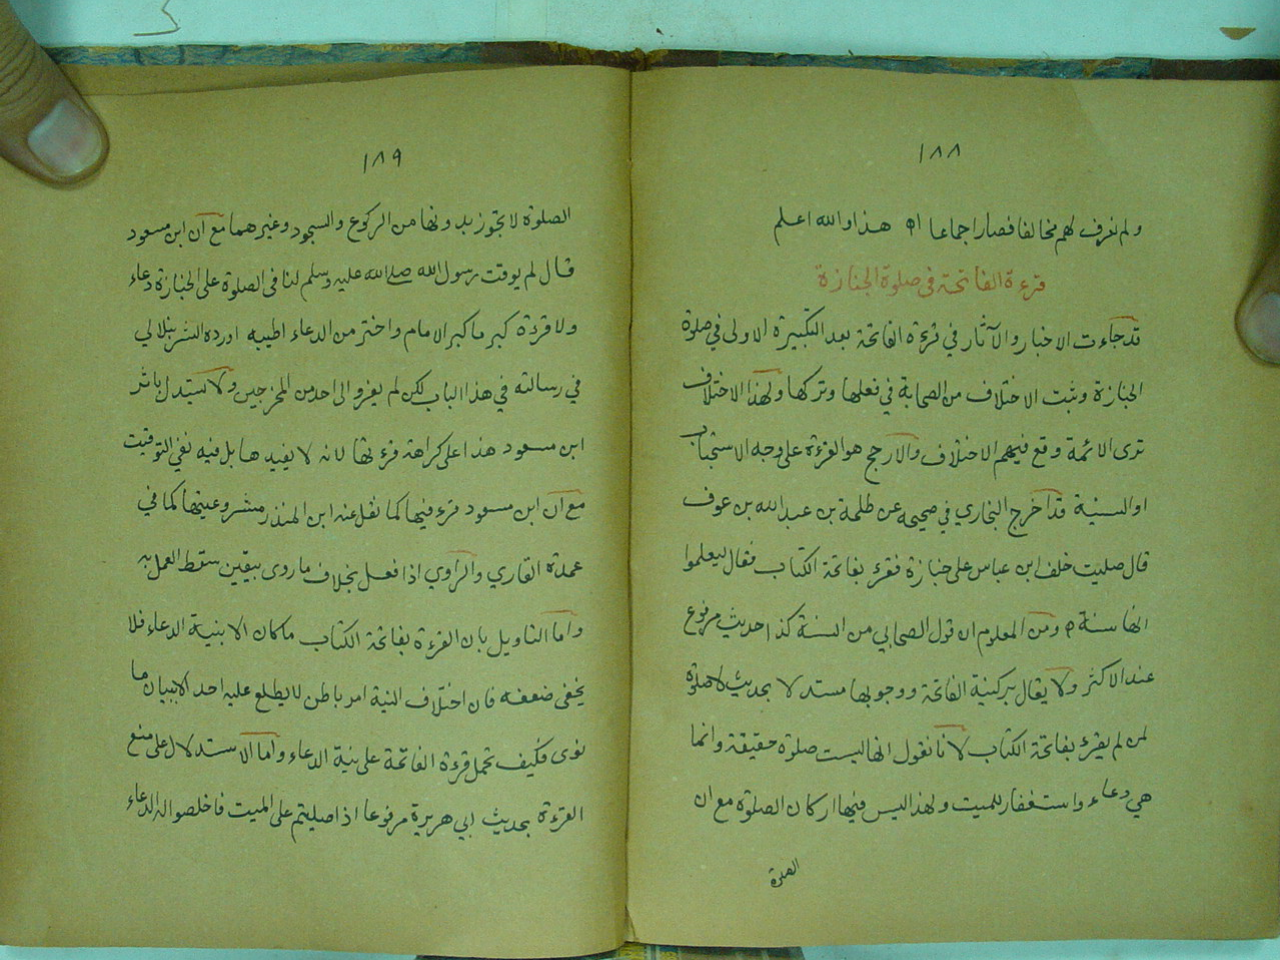 ١٨٨
ولم نعرف لهم مخالفا فصار اجماعا اه هذا والله اعلم
قرءة الفاتحة في صلوة الجنازة
قد جاءت الاخبار والآثار في قرءة الفاتحة بعد التكبيرة الاولى في صلوة
الجنازة وثبت الاختلاف من الصحابة في فعلها وتركها ولهذا الاختلاف
ترى الائمة وقع فيهم الاختلاف والارجح هو القرءة على وجه الاستحباب
او السنية قد اخرج البخاري في صحيحه عن طلحة بن عبد الله بن عوف
قال صليت خلف ابن عباس على جنازة فقرء بفاتحة الكتاب فقال ليعلموا
انها سنة ه ومن المعلوم ان قول الصحابي من السنة كذا حديث مرفوع
عند الاكثر ولا يقال بركنية الفاتحة ووجوبها مستدلا بحديث لا صلوة
لمن لم يقرء بفاتحة الكتاب لانا نقول انها ليست صلوة حقيقة وانما
هي دعاء واستغفار للميت ولهذا ليس فيها اركان الصلوة مع ان
الصلوة
١٨٩
الصلوة لا تجوز بدونها من الركوع والسجود وغيرهما مع ان ابن مسعود
قال لم يوقت رسول الله صلى الله عليه وسلم لنا في الصلوة على الجنازة دعاء
ولا قرءة كبر ما كبر الامام واختر من الدعاء اطيبه اورده الشرنبلالي
في رسالته في هذا الباب لكن لم يعزو الى احد من المخرجين ولا يستدل باثر
ابن مسعود هذا على كراهة قرءتها لانه لا يفيدها بل فيه نفي التوقيت
مع ان ابن مسعود قرء فيها كما نقل عنه ابن المنذر مشروعيتها كما في
عمدة القاري والراوي اذا فعل بخلاف ما روى بيقين سقط العمل به
واما التاويل بان القرءة بفاتحة الكتاب ما كان الا بنية الدعاء فلا
يخفى ضعفه فان اختلاف النية امر باطن لا يطلع عليه احد الا ببيان ما
نوى فكيف تحمل قرءة الفاتحة على نية الدعاء واما الاستدلال على منع
القرءة بحديث ابي هريرة مرفوعا اذا صليتم على الميت فاخلصوا له الدعاء